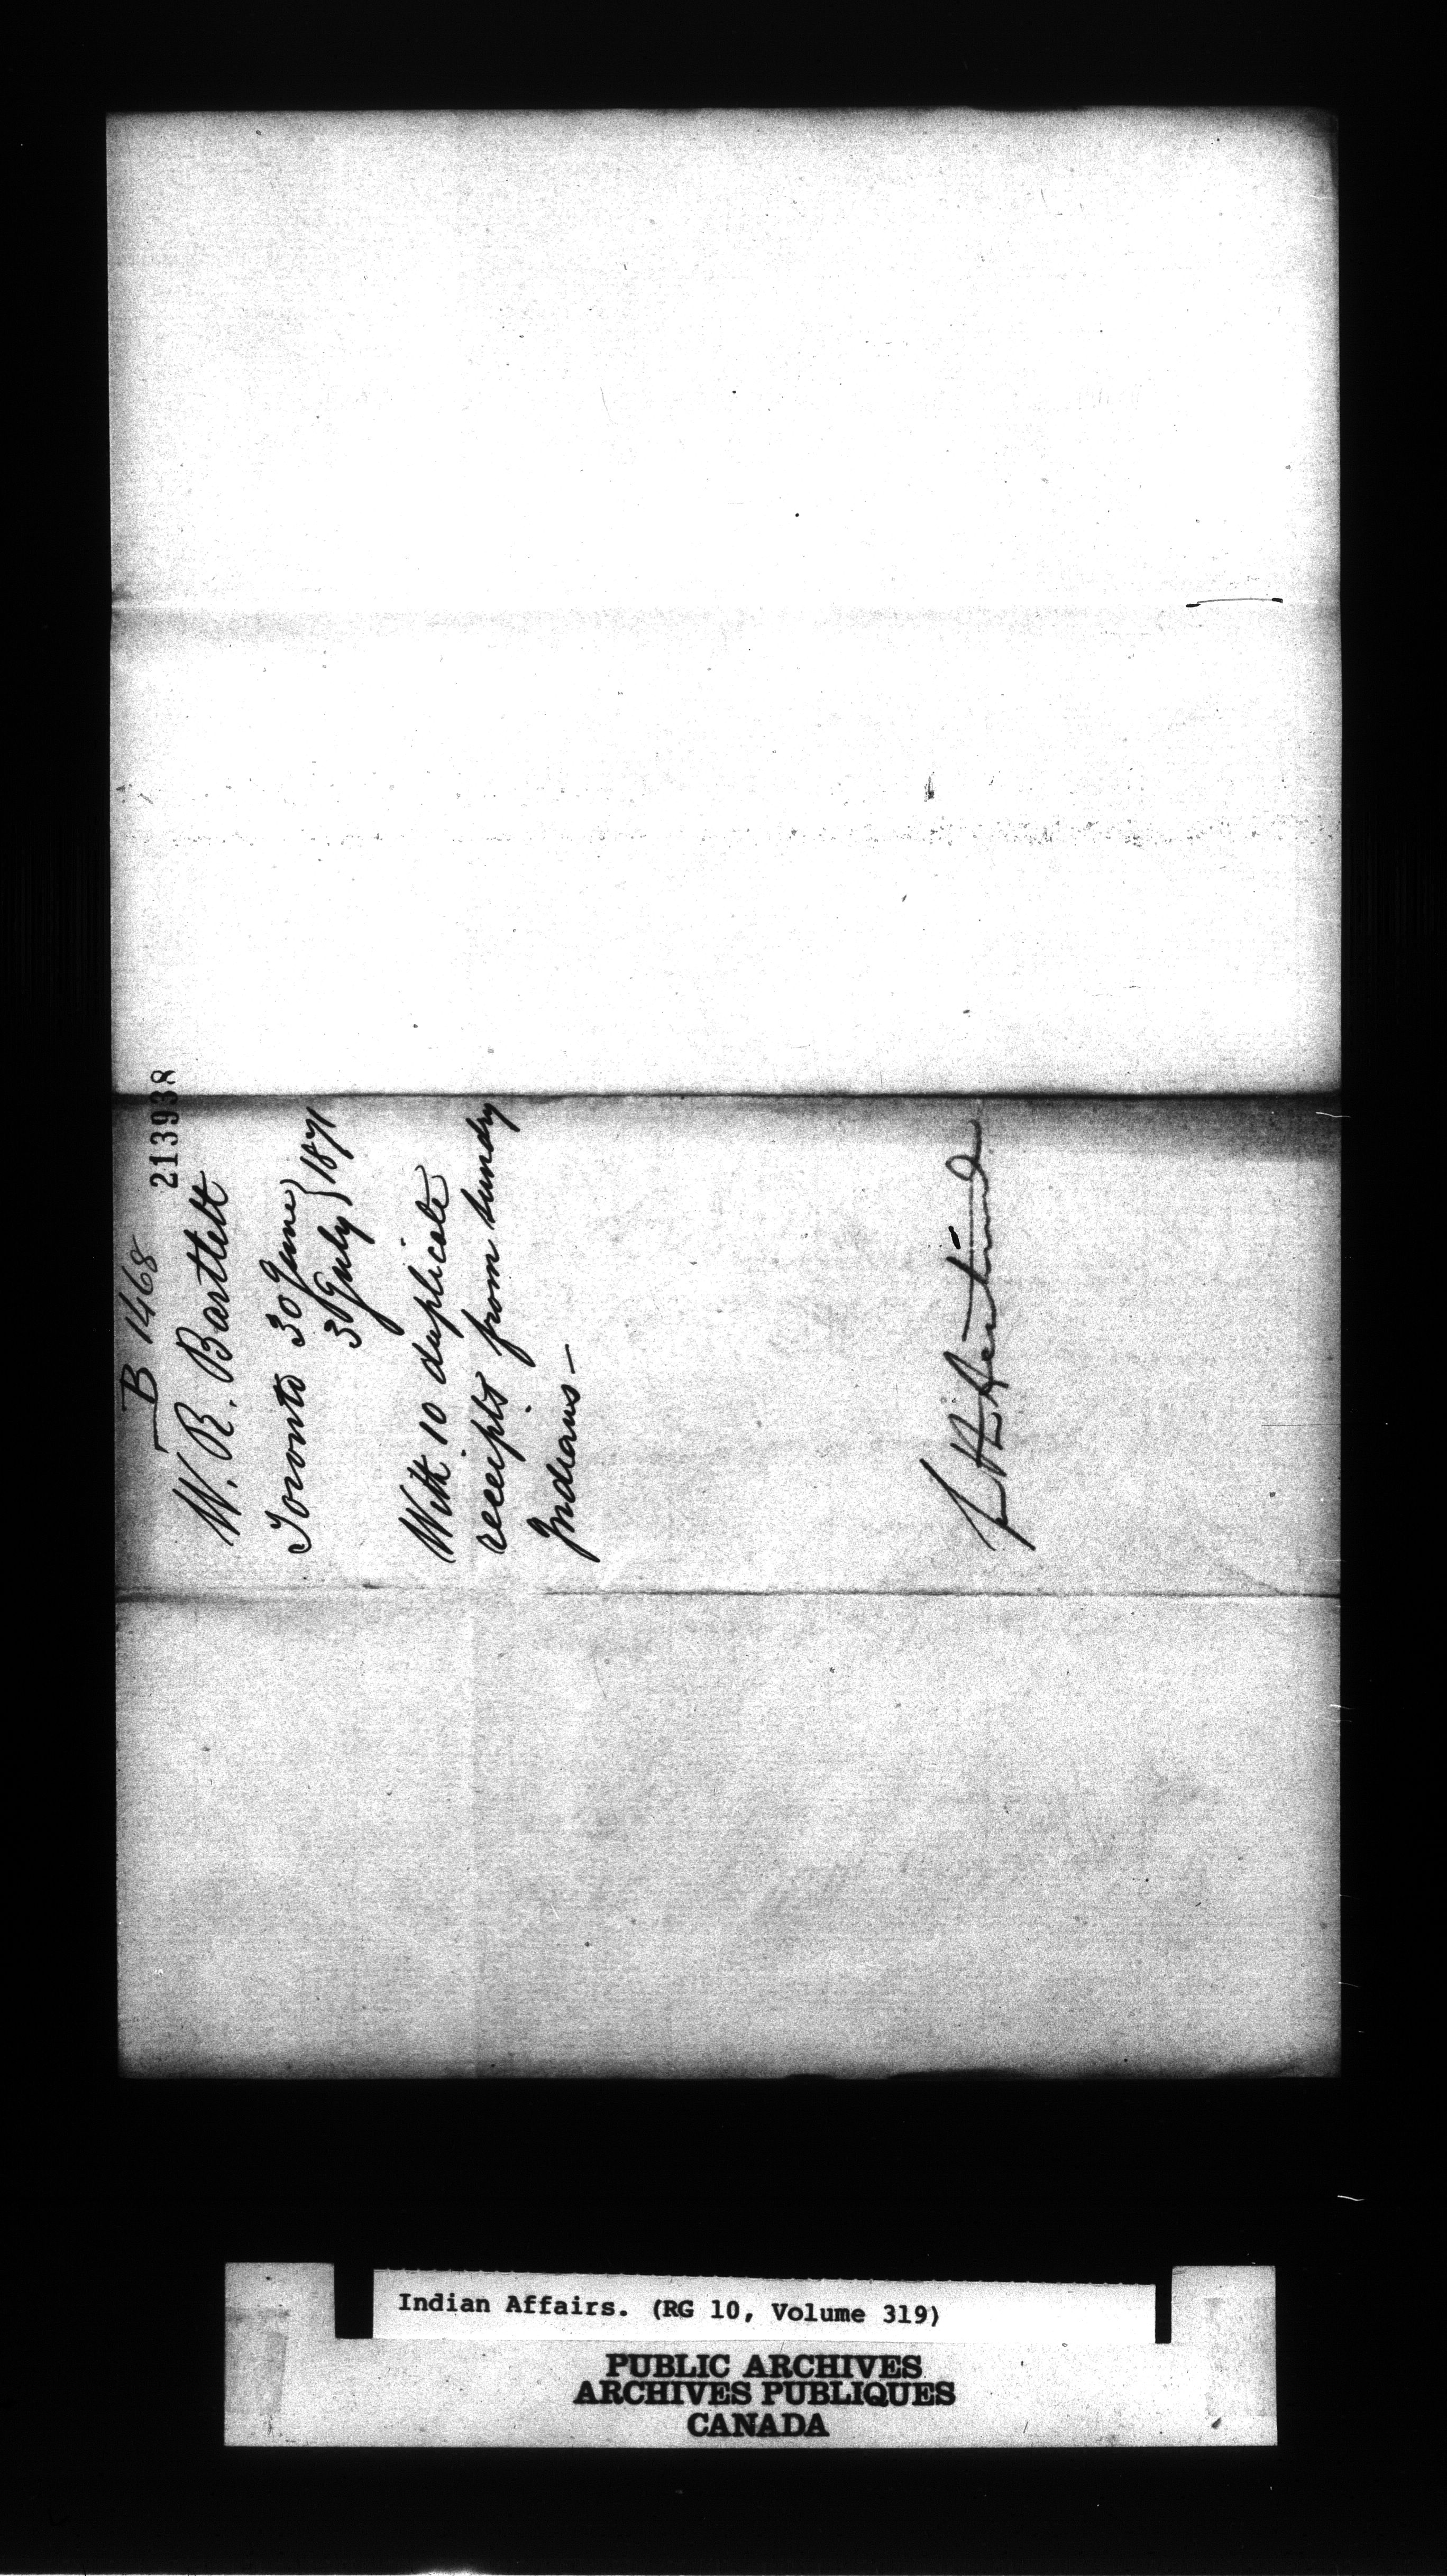 213938
B 1468
W. R. Bartlett
Toronto 30 June } 1871
3 July
With 10 duplicate
receipts from sundry
Indians —
Indian Affairs. (RG 10, Volume 319)
PUBLIC ARCHIVES
ARCHIVES PUBLIQUES
CANADA